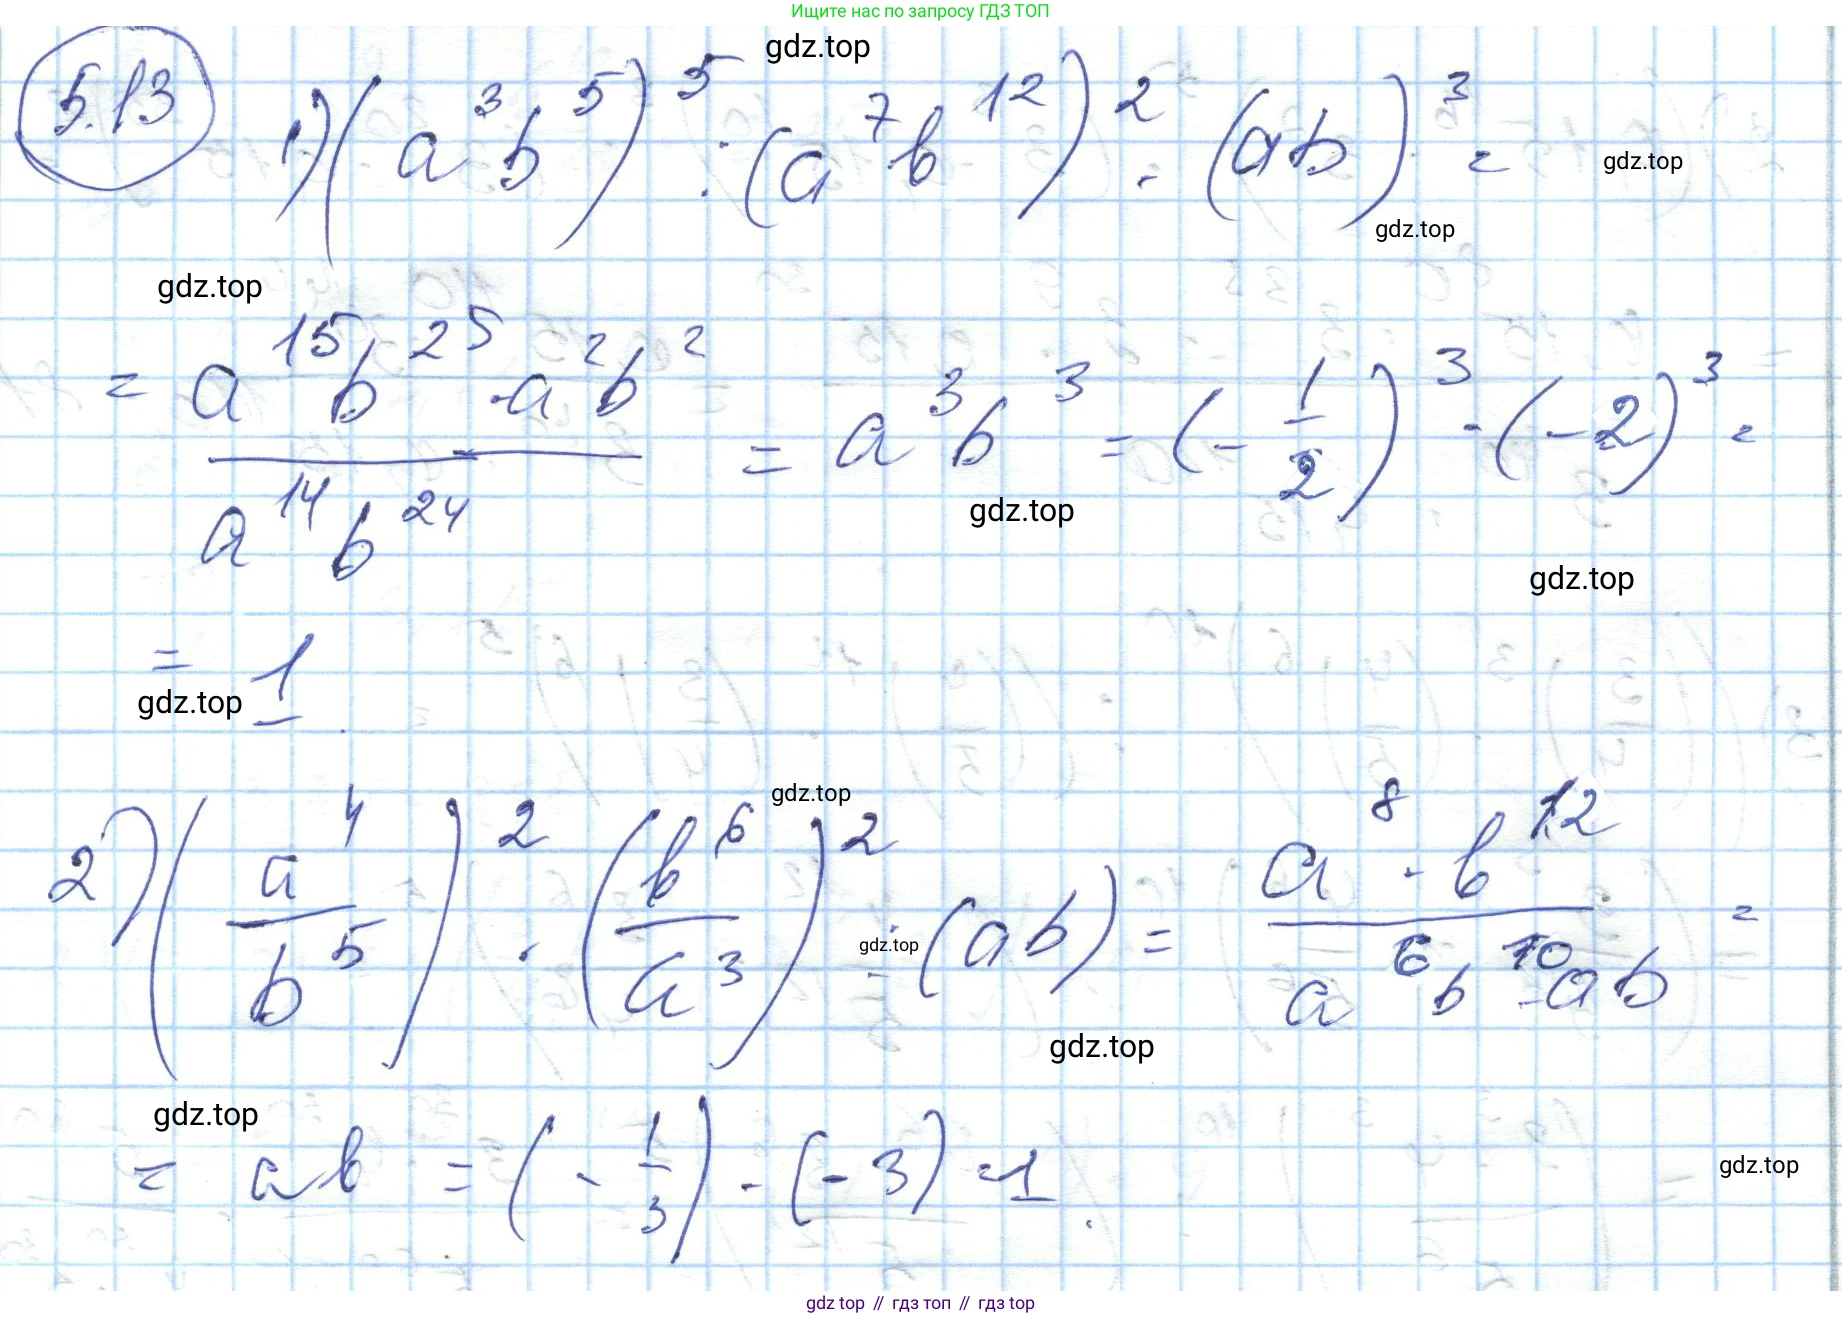 Ищите нас по запросу ГДЗ ТОП
gdz.top
5.13 1) (a³b⁵)⁵ : (a⁷b¹²)² · (ab)³ =
gdz.top
gdz.top
gdz.top
= a¹⁵b²⁵ · a²b² / a¹⁴b²⁴ = a³b³ = (-1/2)³ · (-2)³ =
gdz.top
gdz.top
= 1
gdz.top
gdz.top
2) (a⁴/b⁵)² · (b⁶/a³)² : (ab) = a⁸ · b¹² / a⁶b¹⁰ · ab =
gdz.top
gdz.top
gdz.top
= ab = (-1/3) · (-3) = 1.
gdz.top
gdz top // гдз топ // гдз top